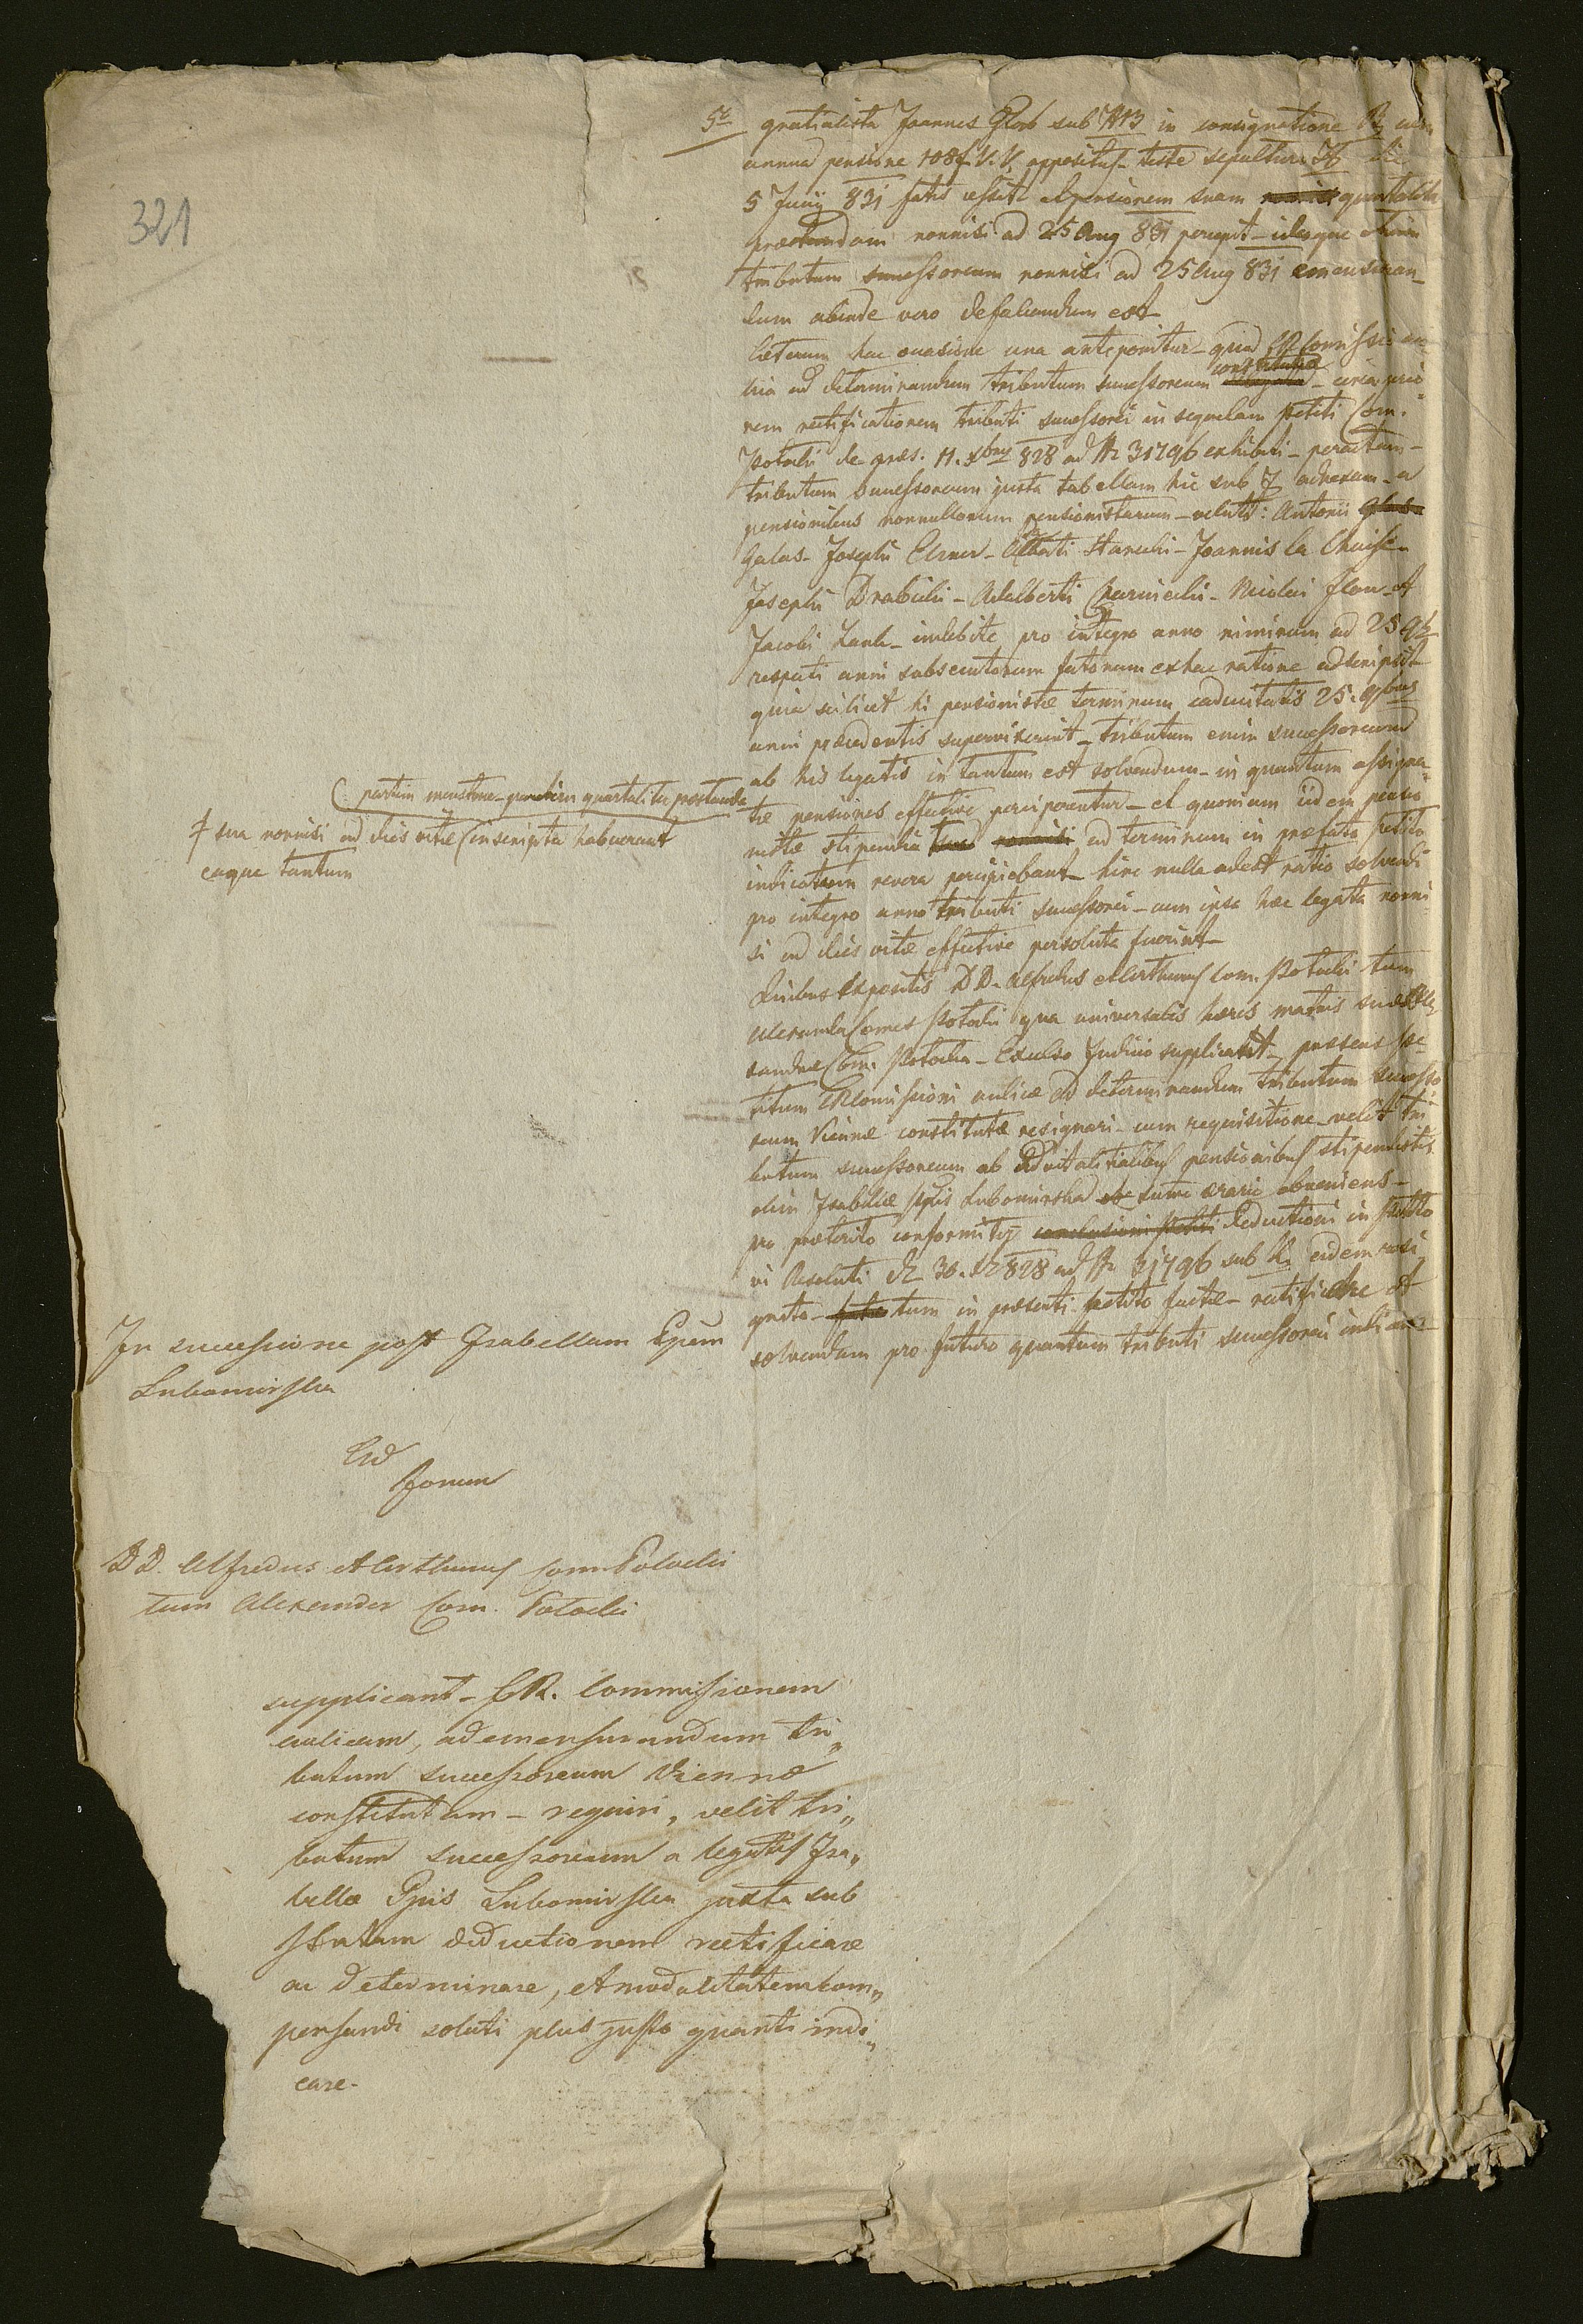 321
5to gratialista Joannes Glob sub N 13 in consignatione B, cum
annua pensione 108 f. V. V. appositus – teste sepultura H die
5 Junij 831 fatis cessit et pensionem suam quartaliter
praestandam nonnisi ad 25 Aug 831 percepit – ideoque etiam
tributum successoreum nonnisi ad 25 Aug 831 emensuran_
dum abinde vero defalcandum est –
Ceterum hac occasione una anteponitur – quod CR Comissio au
lica ad determinandum tributum successoreum constituta – circa prio
rem rectificationem tributi successorei in sequelam petiti Com.
Potocki de praes. 11. xbris 828 ad N 31796 exhibiti – peractam –
tributum successoreum juxta tabellam hic sub J adnexam – a
pensionibus nonnullorum pensionistarum – veluti: Antonii
Galas – Josephi Elsner – Alberti Starecki – Joannis la Chaise –
Josephi Drabicki – Adalberti Czarniecki – Nicolai Flou – et
Jacobi Lank – indebite pro integro anno nimirum ad 25 9b
respecti anni subsecutorum fatorum ex hac ratione adscripsit
quia scilicet hi pensionistae terminum caducitatis 25. 9bris
anni praecedentis supervixerint – tributum enim successoreum
ab his legatis in tantum est solvendum – in quantum assigna
tae pensiones effective perciperentur – et quoniam iidem pensio
nistae stipendia ad terminum in praefato petito
indicatum revera percipiebant – hinc nulla adest ratio solvendi
pro integro anno tributi successorei – cum ipsa haec legata nonni
si ad dies vitae effective persoluta fuerint –
(partim menstrue – partim quartaliter praestanda
sua nonnisi ad dies vitae (inscripta habuerant
eaque tantum
Quibus expositis DD. Alfredus et Arthurus Com. Potocki tum
Alexander Comes Potocki qua universalis haeres matris suae Alex
andrae Com. Potocka – Excelso Judicio supplicant – praesens pe
titum CR Comissioni aulicae ad determinandum tributum successo
reum Viennae constitutae resignari – cum requisitione – velit tri
butum successoreum ab advitalitialibus pensionibus stipendistis
olim Isabellae Ppis Lubomirska summo aerario obveniens –
pro praeterito conformiter deductioni in petito
vi Resoluti de 30. Xb 828 ad N 31796 sub K. eidem resi
gnato – tum in praesenti petito factae – rectificare et
solvendum pro futuro quantum tributi successorei indicare –
In successione post Isabellam Ppem
Lubomirska
Ad
Forum
DD. Alfredus et Arthurus Com. Potocki
tum Alexander Com. Potocki
supplicant – CR. Commissionem
aulicam, ad emensurandum tri„
butum successoreum Viennae
constitutam – requiri, velit tri„
butum successoreum a legatis Isa„
bellae Ppis Lubomirska juxta sub
stratam deductionem rectificare
ac determinare, et modalitatem com„
pensandi soluti plus justo quanti indi„
care –